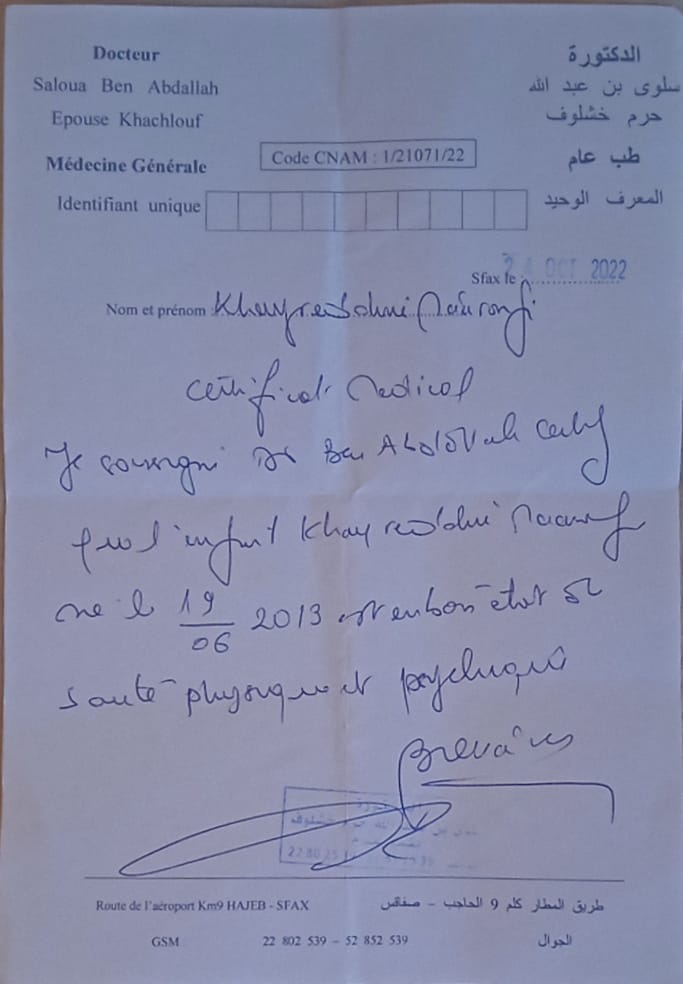 Docteur
Saloua Ben Abdallah
Epouse Khachlouf
Médecine Générale
Identifiant unique
Code CNAM : 1/21071/22
الدكتورة
سلوى بن عبد الله
حرم خشلوف
طب عام
المعرف الوحيد
Sfax le : 24 OCT 2022
Nom et prénom : Khayreddine
Certificat Medical
Je soussigné Dr Ben Abdallah certif
que l'enfant Khayreddine
né le 19/06 2013 est en bon état de
santé physique et psychique
22 80 25
Route de l'aéroport Km9 HAJEB - SFAX
طريق المطار كلم 9 الحاجب - صفاقس
GSM 22 802 539 - 52 852 539 الجوال